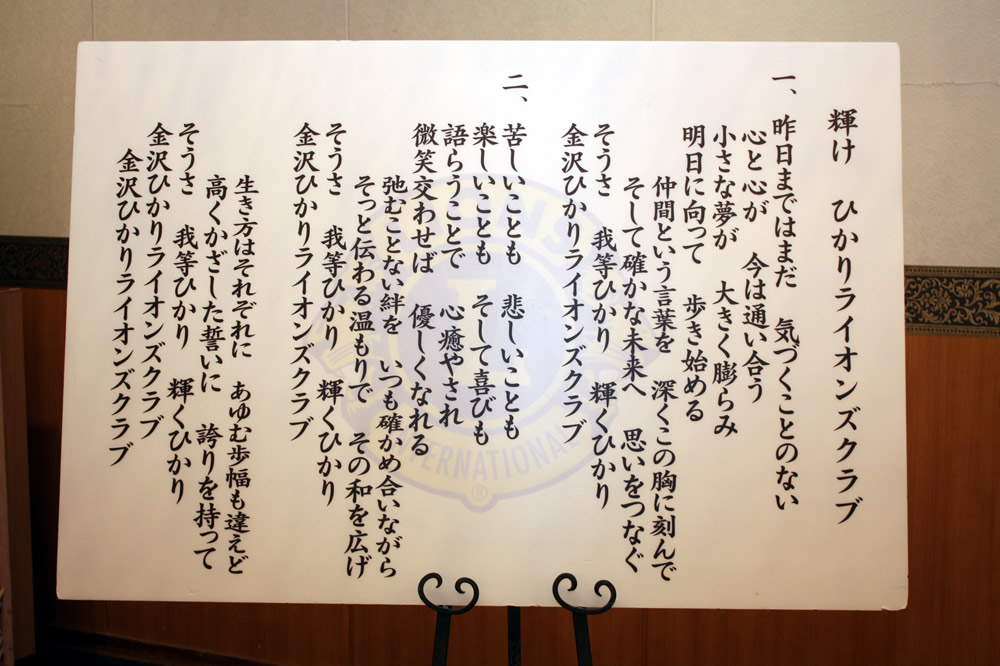 輝け　ひかりライオンズクラブ
一、昨日まではまだ　気づくことのない
心と心が　今は通い合う
小さな夢が　大きく膨らみ
明日に向って　歩き始める
仲間という言葉を　深くこの胸に刻んで
そして確かな未来へ　思いをつなぐ
そうさ　我等ひかり　輝くひかり
金沢ひかりライオンズクラブ
二、苦しいことも　悲しいことも
楽しいことも　そして喜びも
語らうことで　心癒やされ
微笑交わせば　優しくなれる
弛むことない絆を　いつも確かめ合いながら
そっと伝わる温もりで　その和を広げ
そうさ　我等ひかり　輝くひかり
金沢ひかりライオンズクラブ
生き方はそれぞれに　あゆむ歩幅も違えど
高くかざした誓いに　誇りを持って
そうさ　我等ひかり　輝くひかり
金沢ひかりライオンズクラブ
金沢ひかりライオンズクラブ
LIONS
L
INTERNATIONAL
®